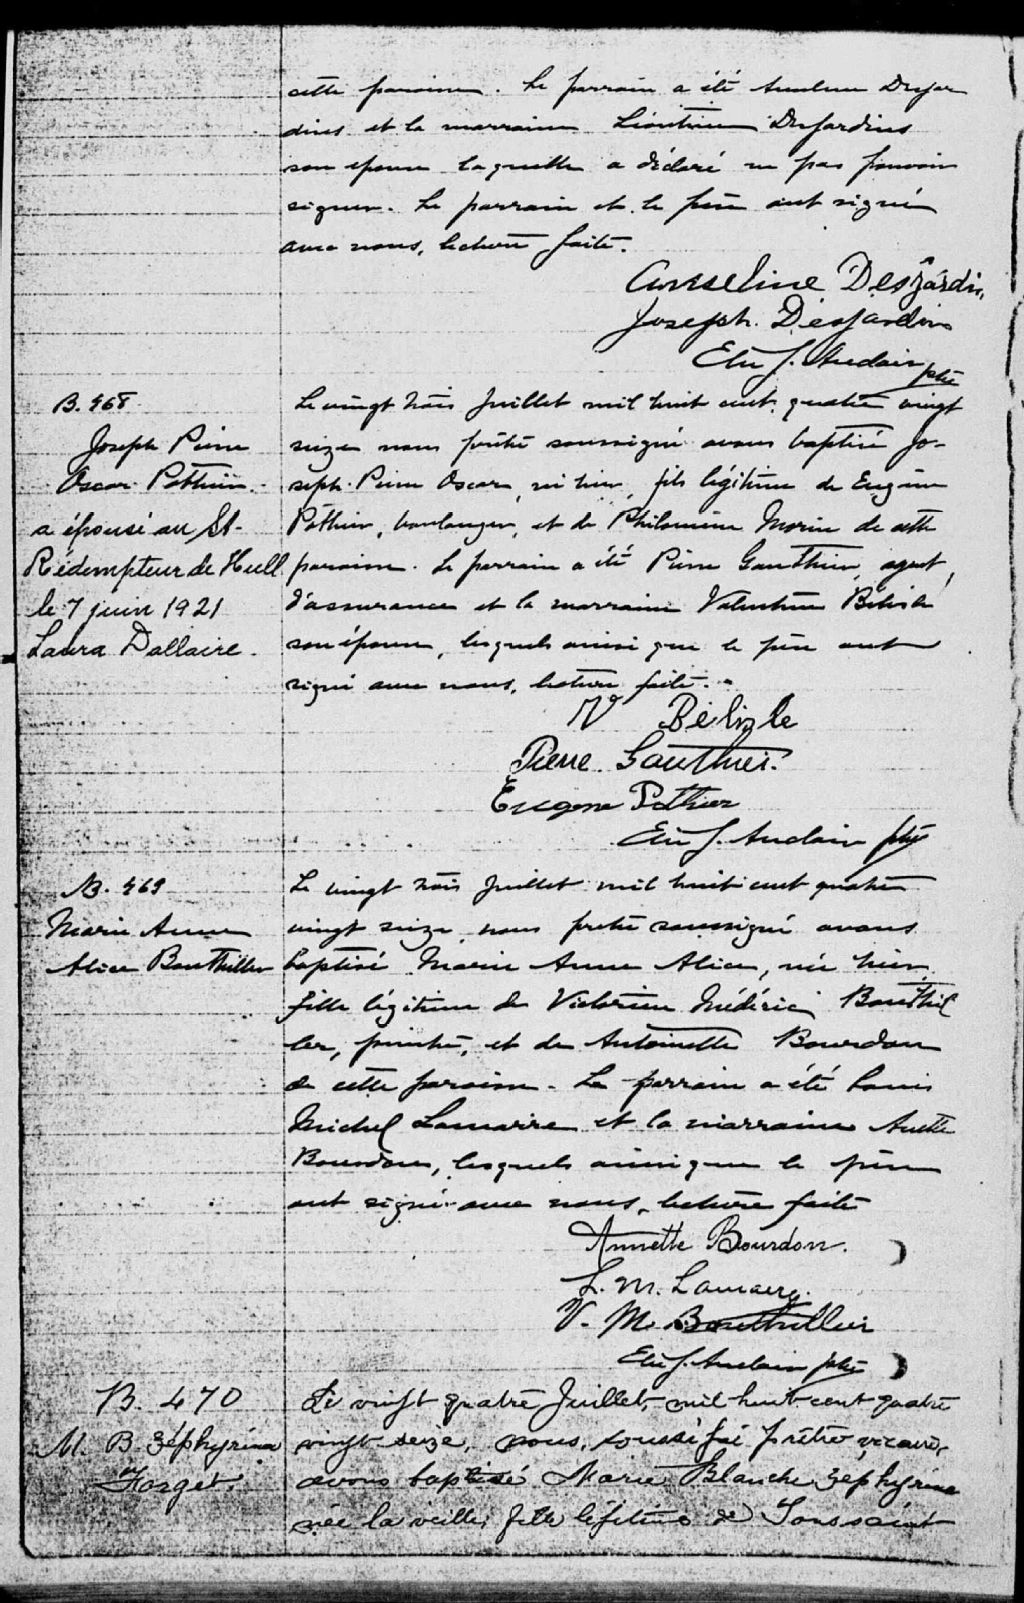 cette paroisse. Le parrain a été Anselme Desjar
dins et la marraine Léontine Desjardins
son épouse laquelle a déclaré ne pas pouvoir
signer. Le parrain et le père ont signé
avec nous, lecture faite.
Anseline Desjardin,
Joseph. Desjardins
J. Auclair ptre
B. 468
Joseph Pierre
Oscar Pothier.
a épousé au St-
Rédempteur de Hull
le 7 juin 1921
Laura Dallaire.
Le vingt trois Juillet mil huit cent quatre vingt
seize nous prêtre soussigné avons baptisé Jo-
seph Pierre Oscar, né hier, fils légitime de Eugène
Pothier, boulanger, et de Philomène Morin de cette
paroisse. Le parrain a été Pierre Gauthier, agent
d'assurance et la marraine Valentine Bélisle
son épouse, lesquels ainsi que le père ont
signé avec nous, lecture faite.
V Bélizle
Pierre Gauthier.
Eugene Pothier
J. Auclair ptre
B. 469
Marie Anne
Alice Bouthiller
Le vingt trois Juillet mil huit cent quatre
vingt seize, nous prêtre soussigné avons
baptisé Marie Anne Alice, née hier,
fille légitime de Victorien Médéric Bouthil
ler, peintre, et de Antoinette Bourdon
de cette paroisse. Le parrain a été Louis
Michel Lamarre et la marraine Anette
Bourdon, lesquels ainsi que le père
ont signé avec nous, lecture faite
Annette Bourdon.
L. M. Lamarre.
V. M. Bouthillier
J. Auclair ptre
B. 470
M. B. Zéphyrina
Forget.
Le vingt quatre Juillet, mil huit cent quatre
vingt seize, nous, soussigné prêtre vicaire,
avons baptisé Marie Blanche Zéphyrina
née la veille, fille légitime de Toussaint